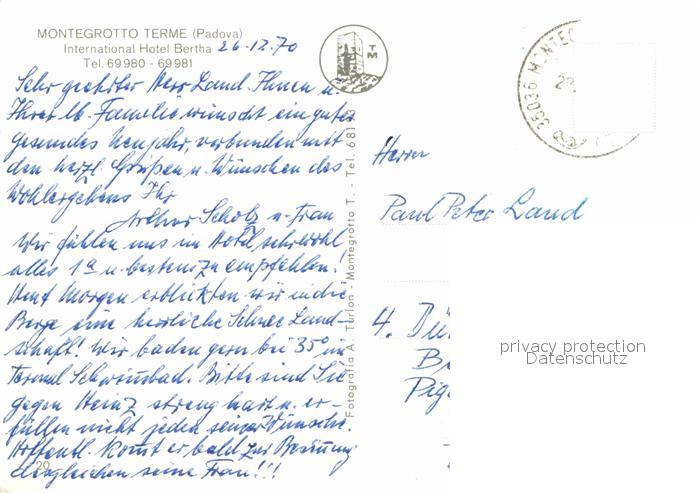 MONTEGROTTO TERME (Padova)
International Hotel Bertha 26.12.70
Tel. 69980 - 69981
TM
35036 MONTEG
Sehr geehrter Herr Land. Ihnen u.
Ihrer lb. Familie wünscht ein gutes
gesundes Neujahr, verbunden mit
den herzl. Grüßen u. Wünschen des
Wohlergehens Ihr
Arthur Scholz u. Frau
Wir fühlen uns im Hotel sehr wohl
alles 1a u. bestens zu empfehlen!
Heut Morgen erblickten wir in die
Berge eine herrliche Schnee Land-
schaft! Wir baden gern bei 35° im
Termal Schwimbad. Bitte sind Sie
gegen Heinz streng hart u. er-
füllen nicht jeden seiner Wünsche.
Hoffentl. komt er bald zur Besinnung
desgleichen seine Frau!!!
20
Fotografia A. Turlon - Montegrotto T. - Tel. 681
Herrn
Paul Peter Land
4. Dü
privacy protection
Datenschutz